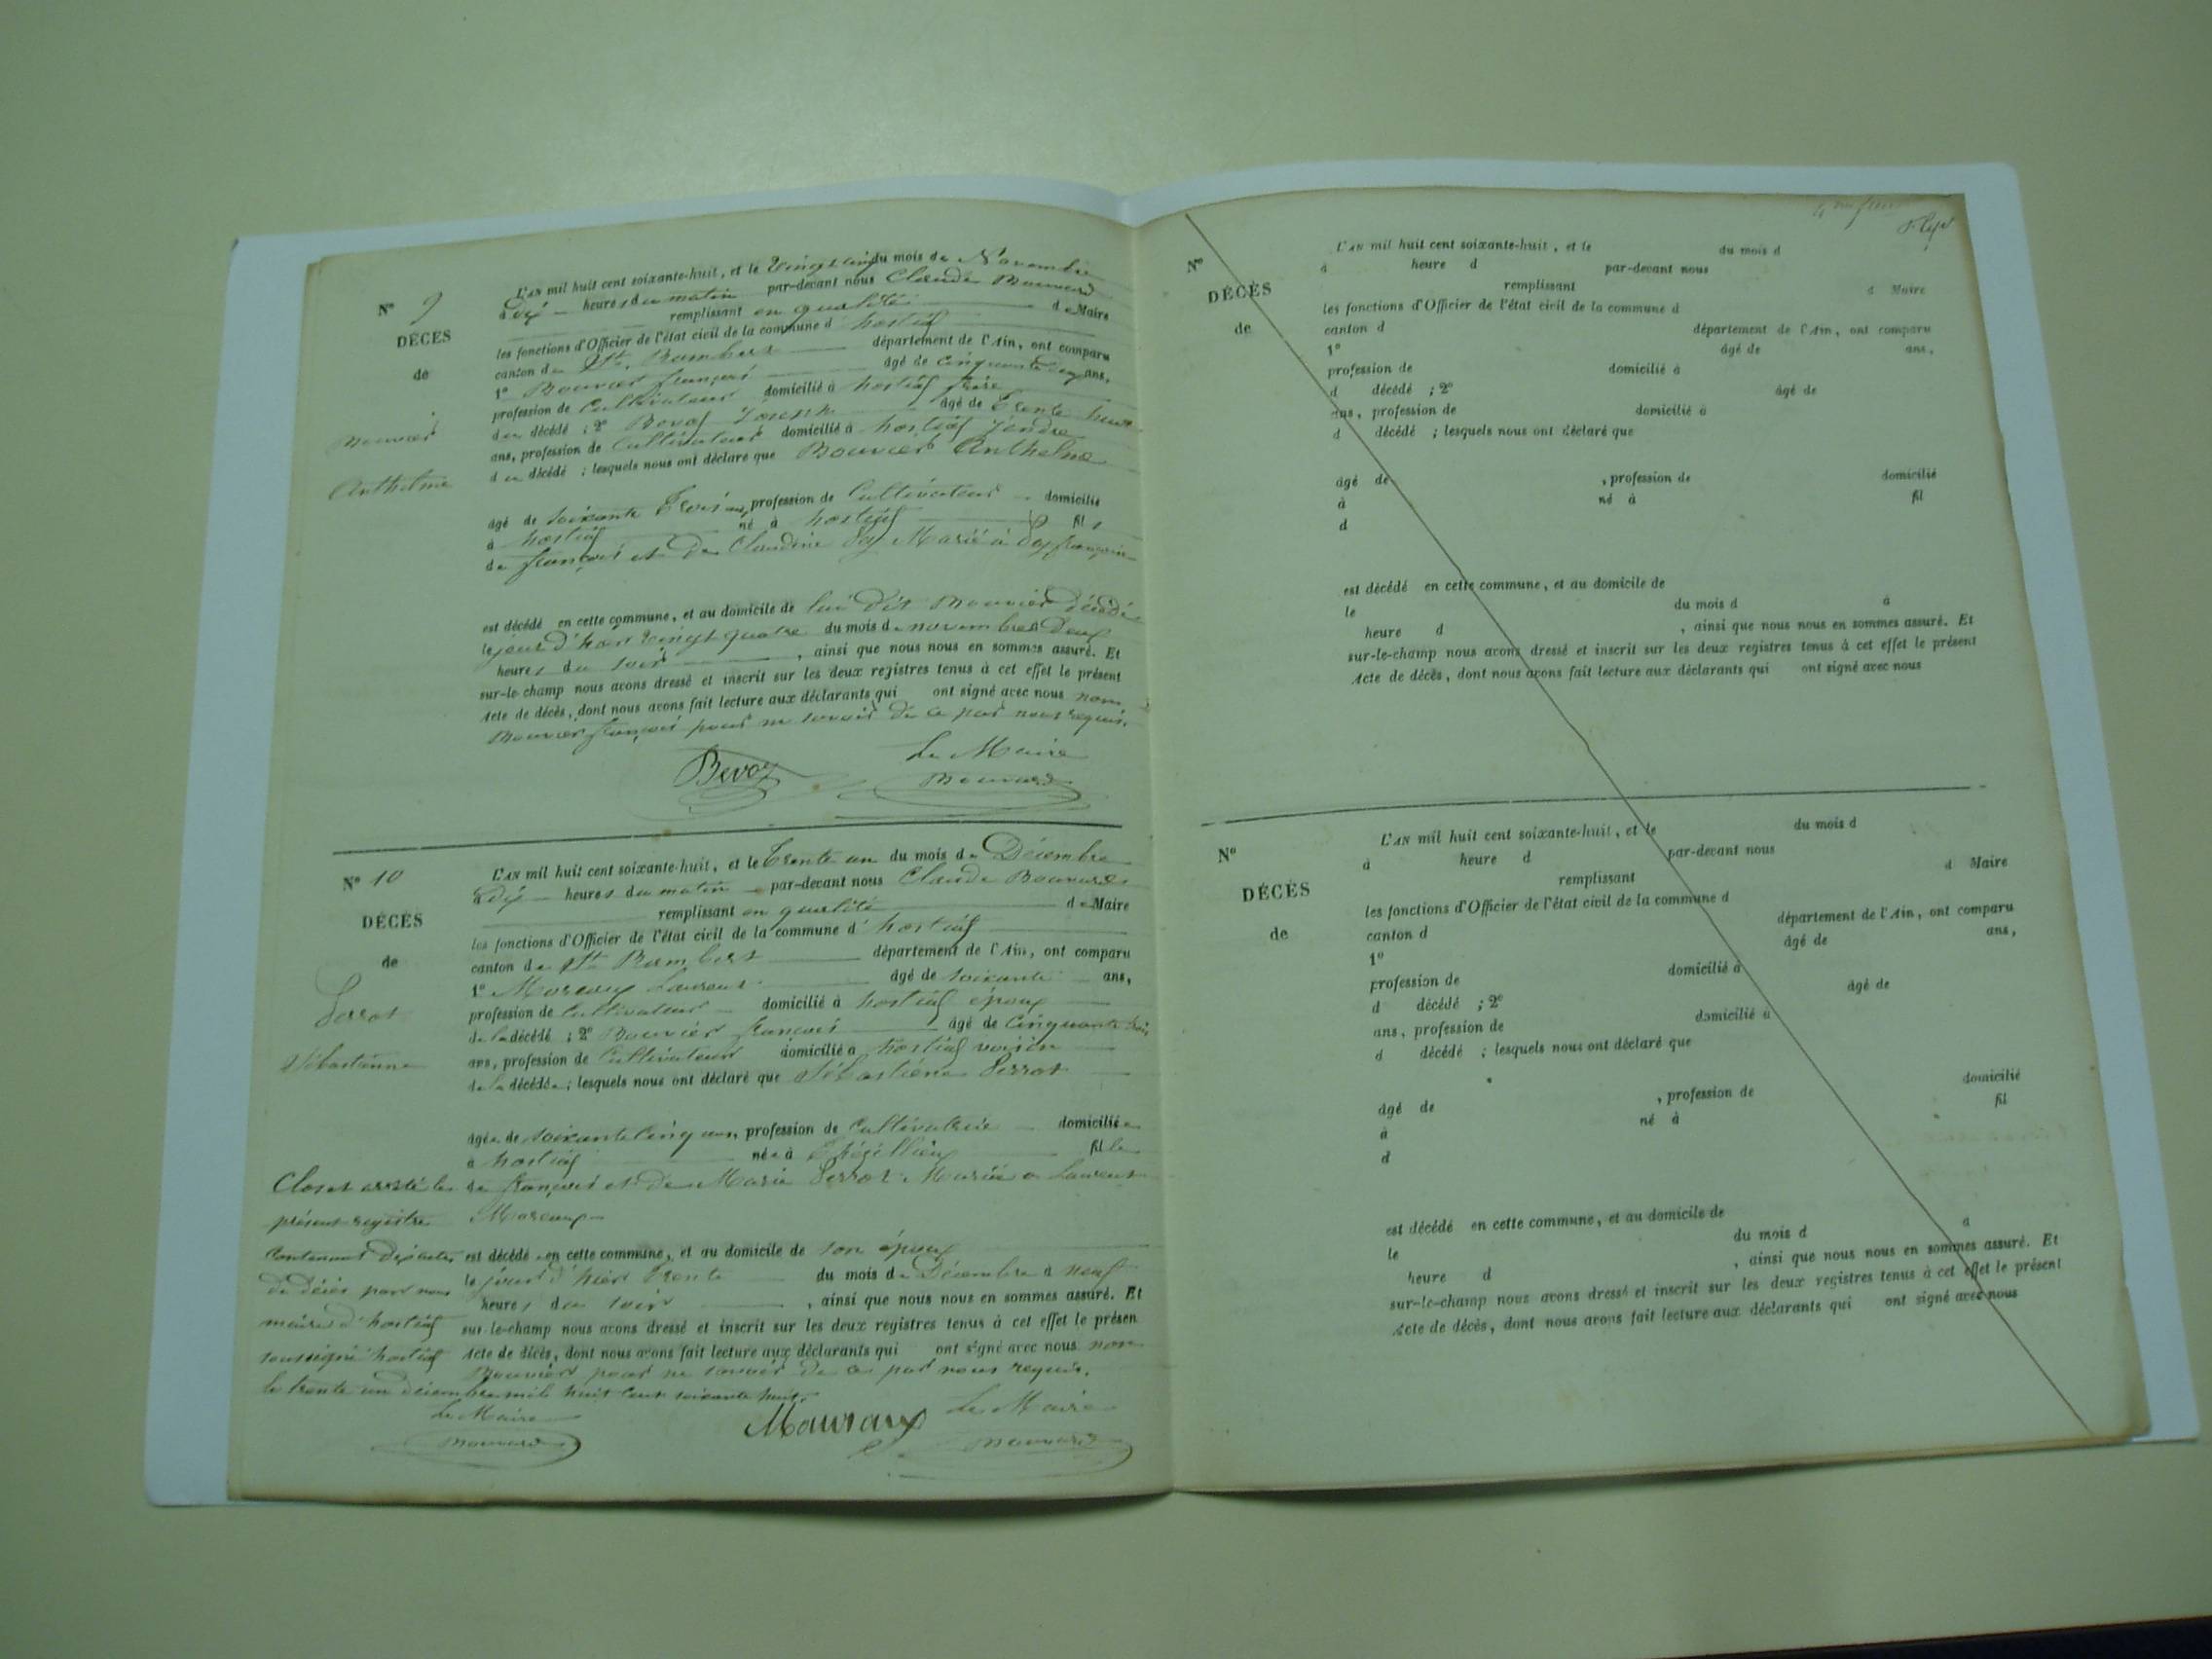 N° 9
DÉCÈS
de
Bouvier
Anthelme
L'AN mil huit cent soixante-huit, et le Vingt cinq du mois de Novembre
à dix heures du matin par-devant nous Claude Bonnard
remplissant en qualité de Maire
les fonctions d'Officier de l'état civil de la commune d'hostiaz
canton de St. Rambert département de l'Ain, ont comparu
1° Bouvier françois âgé de Cinquante ans,
profession de Cultivateur domicilié à hostiaz frère
du décédé ; 2° Bevoz Joseph âgé de Trente
ans, profession de Cultivateur domicilié à hostiaz Jendre
du décédé ; lesquels nous ont déclaré que Bouvier Anthelme
âgé de soixante Trois ans, profession de Cultivateur domicilié
à hostiaz né à hostiaz fils
de françois et de Claudine Marié à
est décédé en cette commune, et au domicile de lui dit Bouvier décédé
le jour d'hier vingt quatre du mois de novembre à Deux
heures du soir , ainsi que nous nous en sommes assuré. Et
sur-le-champ nous avons dressé et inscrit sur les deux registres tenus à cet effet le présent
Acte de décès, dont nous avons fait lecture aux déclarants qui ont signé avec nous non
Bouvier françois pour ne savoir de ce par nous requis.
Le Maire
Bevoz Bonnard
N° 10
DÉCÈS
de
Serrat
Sébastienne
L'AN mil huit cent soixante-huit, et le Trente un du mois de Décembre
à dix heures du matin par-devant nous Claude Bonnard
remplissant en qualité de Maire
les fonctions d'Officier de l'état civil de la commune d'hostiaz
canton de St. Rambert département de l'Ain, ont comparu
1° Laurent âgé de soixante ans,
profession de Cultivateur domicilié à hostiaz époux
de la décédé ; 2° Bouvier françois âgé de Cinquante trois
ans, profession de Cultivateur domicilié à hostiaz voisin
de la décédée ; lesquels nous ont déclaré que Sébastiene Serrat
âgée de soixante cinq ans, profession de Cultivatrice domiciliée
à hostiaz née à fille
de françois et de Marie Serrat Mariée a Laurent
est décédée en cette commune, et au domicile de son époux
le jour d'hier trente du mois de Décembre à neuf
heures du soir , ainsi que nous nous en sommes assuré. Et
sur-le-champ nous avons dressé et inscrit sur les deux registres tenus à cet effet le présen
Acte de décès, dont nous avons fait lecture aux déclarants qui ont signé avec nous non
Bouvier pour ne savoir de ce par nous requis.
Clos et arrêté le
présent registre
Contenant dix actes
de décès par nous
maire d'hostiaz
soussigné hostiaz
le trente un décembre mil huit cent soixante huit.
Le Maire
Bonnard
Mauraux
Le Maire
Bonnard
N°
DÉCÈS
de
L'AN mil huit cent soixante-huit, et le du mois d
à heure d par-devant nous
remplissant d Maire
les fonctions d'Officier de l'état civil de la commune d
canton d département de l'Ain, ont comparu
1° âgé de ans,
profession de domicilié à
d décédé ; 2° âgé de
ans, profession de domicilié à
d décédé ; lesquels nous ont déclaré que
âgé de , profession de domicilié
à né à fil
d
est décédé en cette commune, et au domicile de
le du mois d à
heure d , ainsi que nous nous en sommes assuré. Et
sur-le-champ nous avons dressé et inscrit sur les deux registres tenus à cet effet le présent
Acte de décès, dont nous avons fait lecture aux déclarants qui ont signé avec nous
N°
DÉCÈS
de
L'AN mil huit cent soixante-huit, et le du mois d
à heure d par-devant nous
remplissant d Maire
les fonctions d'Officier de l'état civil de la commune d
canton d département de l'Ain, ont comparu
1° âgé de ans,
profession de domicilié à
d décédé ; 2° âgé de
ans, profession de domicilié à
d décédé ; lesquels nous ont déclaré que
âgé de , profession de domicilié
à né à fil
d
est décédé en cette commune, et au domicile de
le du mois d à
heure d , ainsi que nous nous en sommes assuré. Et
sur-le-champ nous avons dressé et inscrit sur les deux registres tenus à cet effet le présent
Acte de décès, dont nous avons fait lecture aux déclarants qui ont signé avec nous